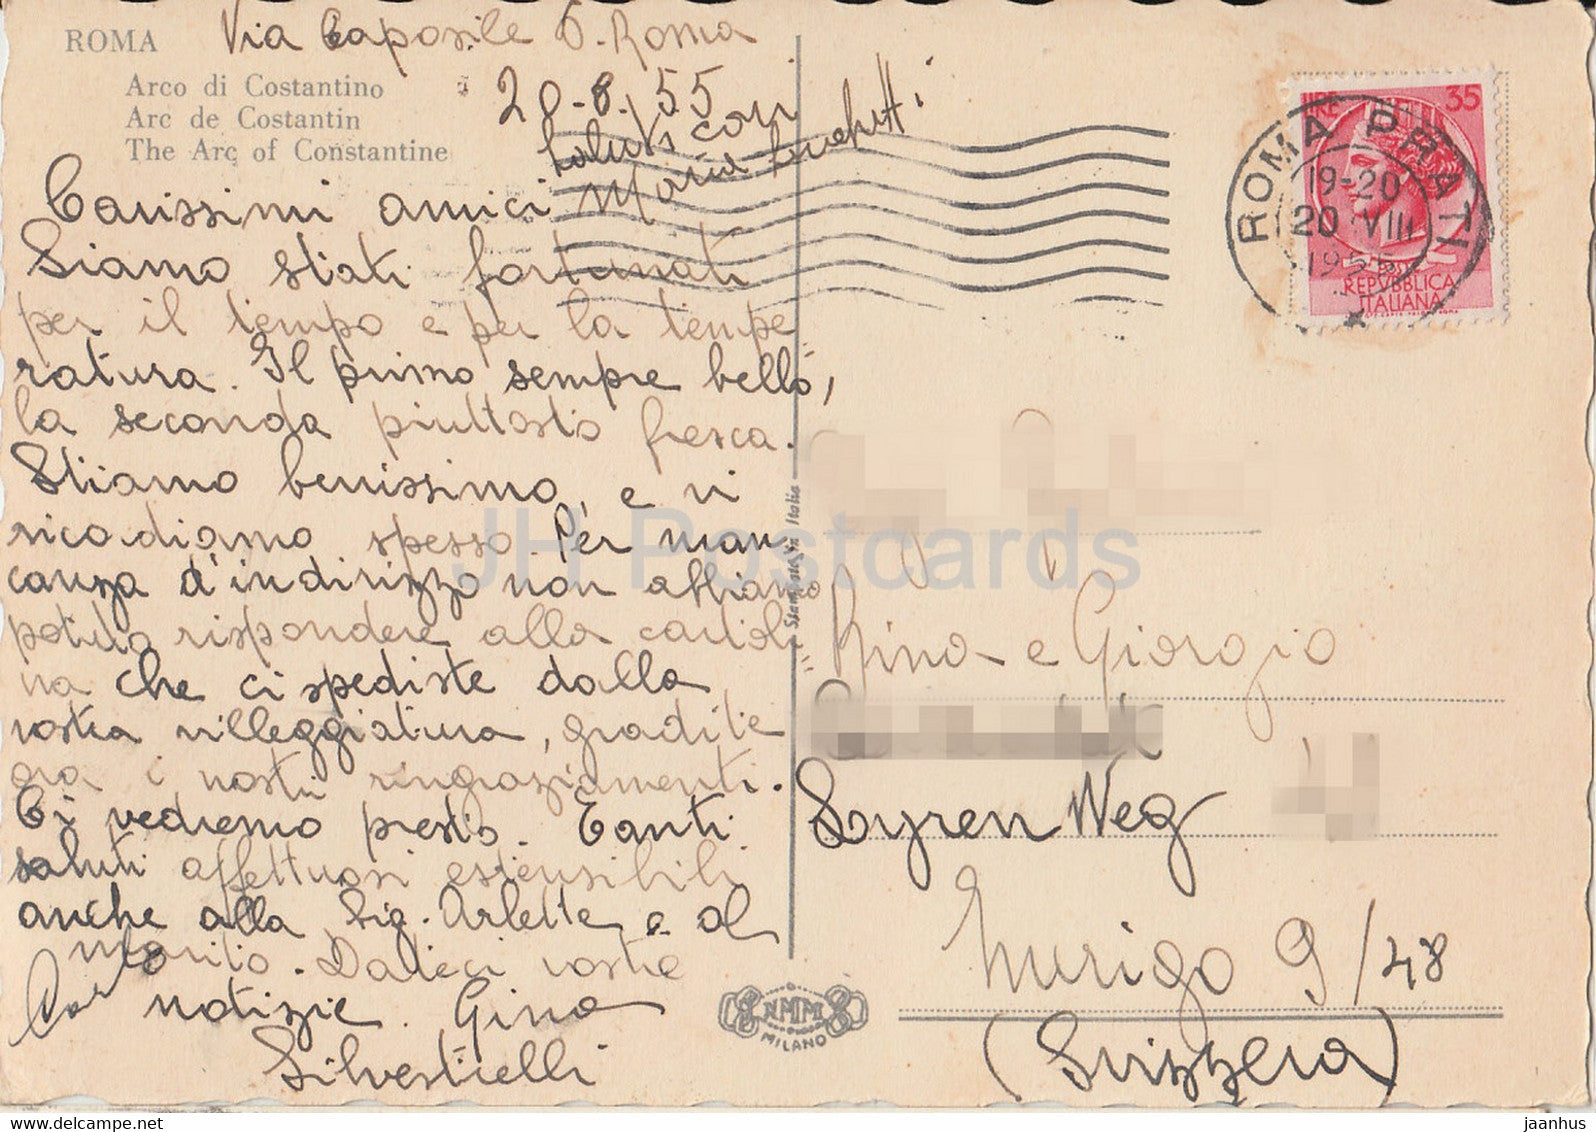 ROMA
Via Caposile 6. Roma
Arco di Costantino
Arc de Costantin
The Arc of Constantine
20-8-55
Saluti cari
Maria
Carissimi amici
Siamo stati fortunati
per il tempo e per la tempe
ratura. Il primo sempre bello,
la seconda piuttosto fresca.
Stiamo benissimo, e vi
ricordiamo spesso. Per man
canza d'indirizzo non abbiamo
potuto rispondere alla cartoli=
na che ci spediste dalla
vostra villeggiatura, gradite
ora i nostri ringraziamenti.
Ci vedremo presto. Tanti
saluti affettuosi estensibili
anche alla Sig. Arlette e al
marito. Dateci vostre
Carlo notizie. Gina
Silvestrelli
Stampato in Italia
NMM
MILANO
LIRE 35
REPVBBLICA
ITALIANA
ROMA PRATI
19-20
20 VIII
1955
Rina e Giorgio
Leyren Weg
Zurigo 9/48
(Svizzera)
JH Postcards
www.delcampe.net
jaanhus